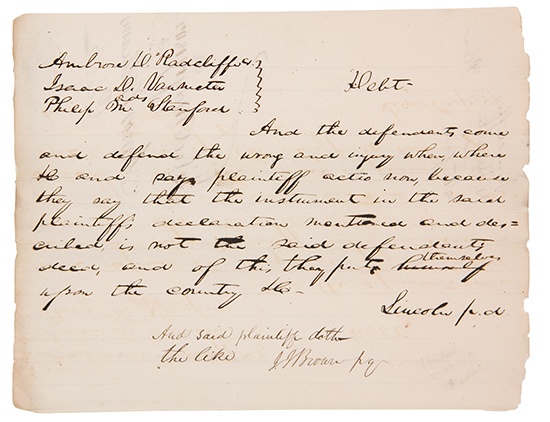 Ambrose D. Radcliffe &
Isaac D. Vanmeter
Philip Stanford
Debt-
And the defendants come
and defend the wrong and injury when, where
&c and say plaintiff actio non, because
they say that the instrument in the said
plaintiff's declaration mentioned and des=
cribed, is not the said defendants
deed, and of this they put themselves
upon the country &c-
Lincoln p.d
And said plaintiff doth
the like J J Brown pq